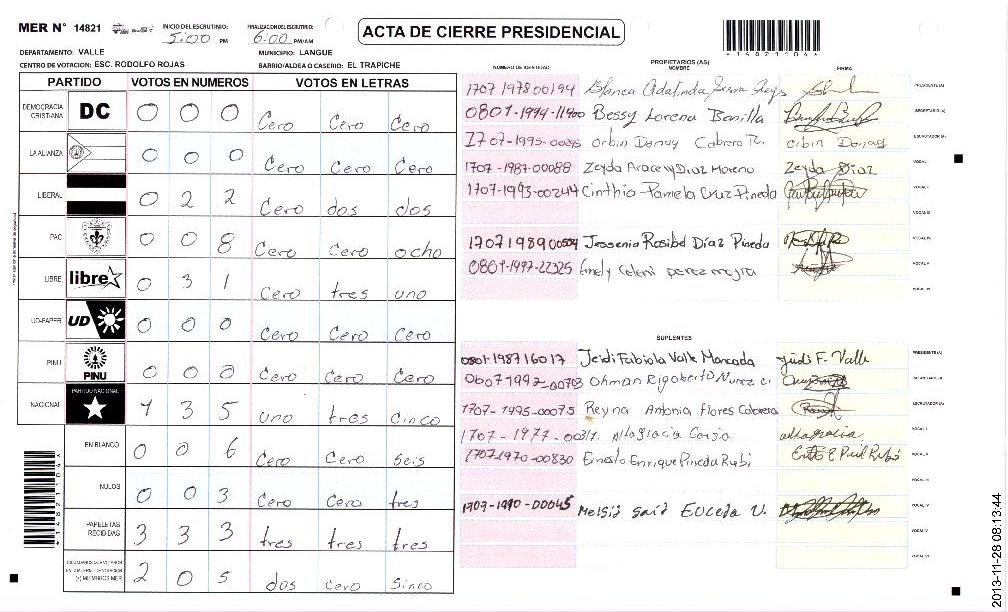 MER N° 14821
INICIO DEL ESCRUTINIO: 5:00 PM
FINALIZACION DEL ESCRUTINIO: 6:00 PM/AM
ACTA DE CIERRE PRESIDENCIAL
DEPARTAMENTO: VALLE
MUNICIPIO: LANGUE
CENTRO DE VOTACION: ESC. RODOLFO ROJAS
BARRIO/ALDEA O CASERIO: EL TRAPICHE
PARTIDO VOTOS EN NUMEROS VOTOS EN LETRAS
DEMOCRACIA CRISTIANA DC 0 0 0 Cero Cero Cero
LA ALIANZA 0 0 0 Cero Cero Cero
LIBERAL 0 2 2 Cero dos dos
PAC 0 0 8 Cero Cero ocho
LIBRE libre 0 3 1 Cero tres uno
UD-FAPER UD 0 0 0 Cero Cero Cero
PINU PINU 0 0 0 Cero Cero Cero
NACIONAL PARTIDO NACIONAL 1 3 5 uno tres cinco
EN BLANCO 0 0 6 Cero Cero seis
NULOS 0 0 3 Cero Cero tres
PAPELETAS RECIBIDAS 3 3 3 tres tres tres
(+) MIEMBROS MER 2 0 5 dos Cero sinco
NUMERO DE IDENTIDAD PROPIETARIOS (AS) NOMBRE FIRMA
1707 1978 00194 Blanca Adalinda PRESIDENTE(A)
0801-1994-11900 Bessy Lorena Bonilla SECRETARIO(A)
1707-1995- Orbin Donay Cabrera Orbin Donay ESCRUTADOR(A)
1707-1987-00088 Zeyda Aracely Diaz Moreno Zeyda Diaz VOCAL I
1707-1993-00244 Cinthia Pamela Cruz Pineda VOCAL II
VOCAL III
1707 1989 00504 Jessenia Rosibel Diaz Pineda VOCAL IV
0801-1997-22325 Emely Celeni perez mejia VOCAL V
VOCAL VI
SUPLENTES
0801-1987 16017 Jeidi Fabiola Valle Moncada Jeidi F. Valle PRESIDENTE(A)
0607 1992-00703 Ohman Rigoberto Nunez SECRETARIO(A)
1707-1995-00075 Reyna Antonia Flores Cabrera ESCRUTADOR(A)
1707-1977- Altagracia altagracia VOCAL I
1707-1970-00830 Ernesto Enrique Pineda Rubi VOCAL II
VOCAL III
1709-1990-00045 Melsid Said Euceda U. VOCAL IV
VOCAL V
VOCAL VI
*14821104*
2013-11-28 08:13:44